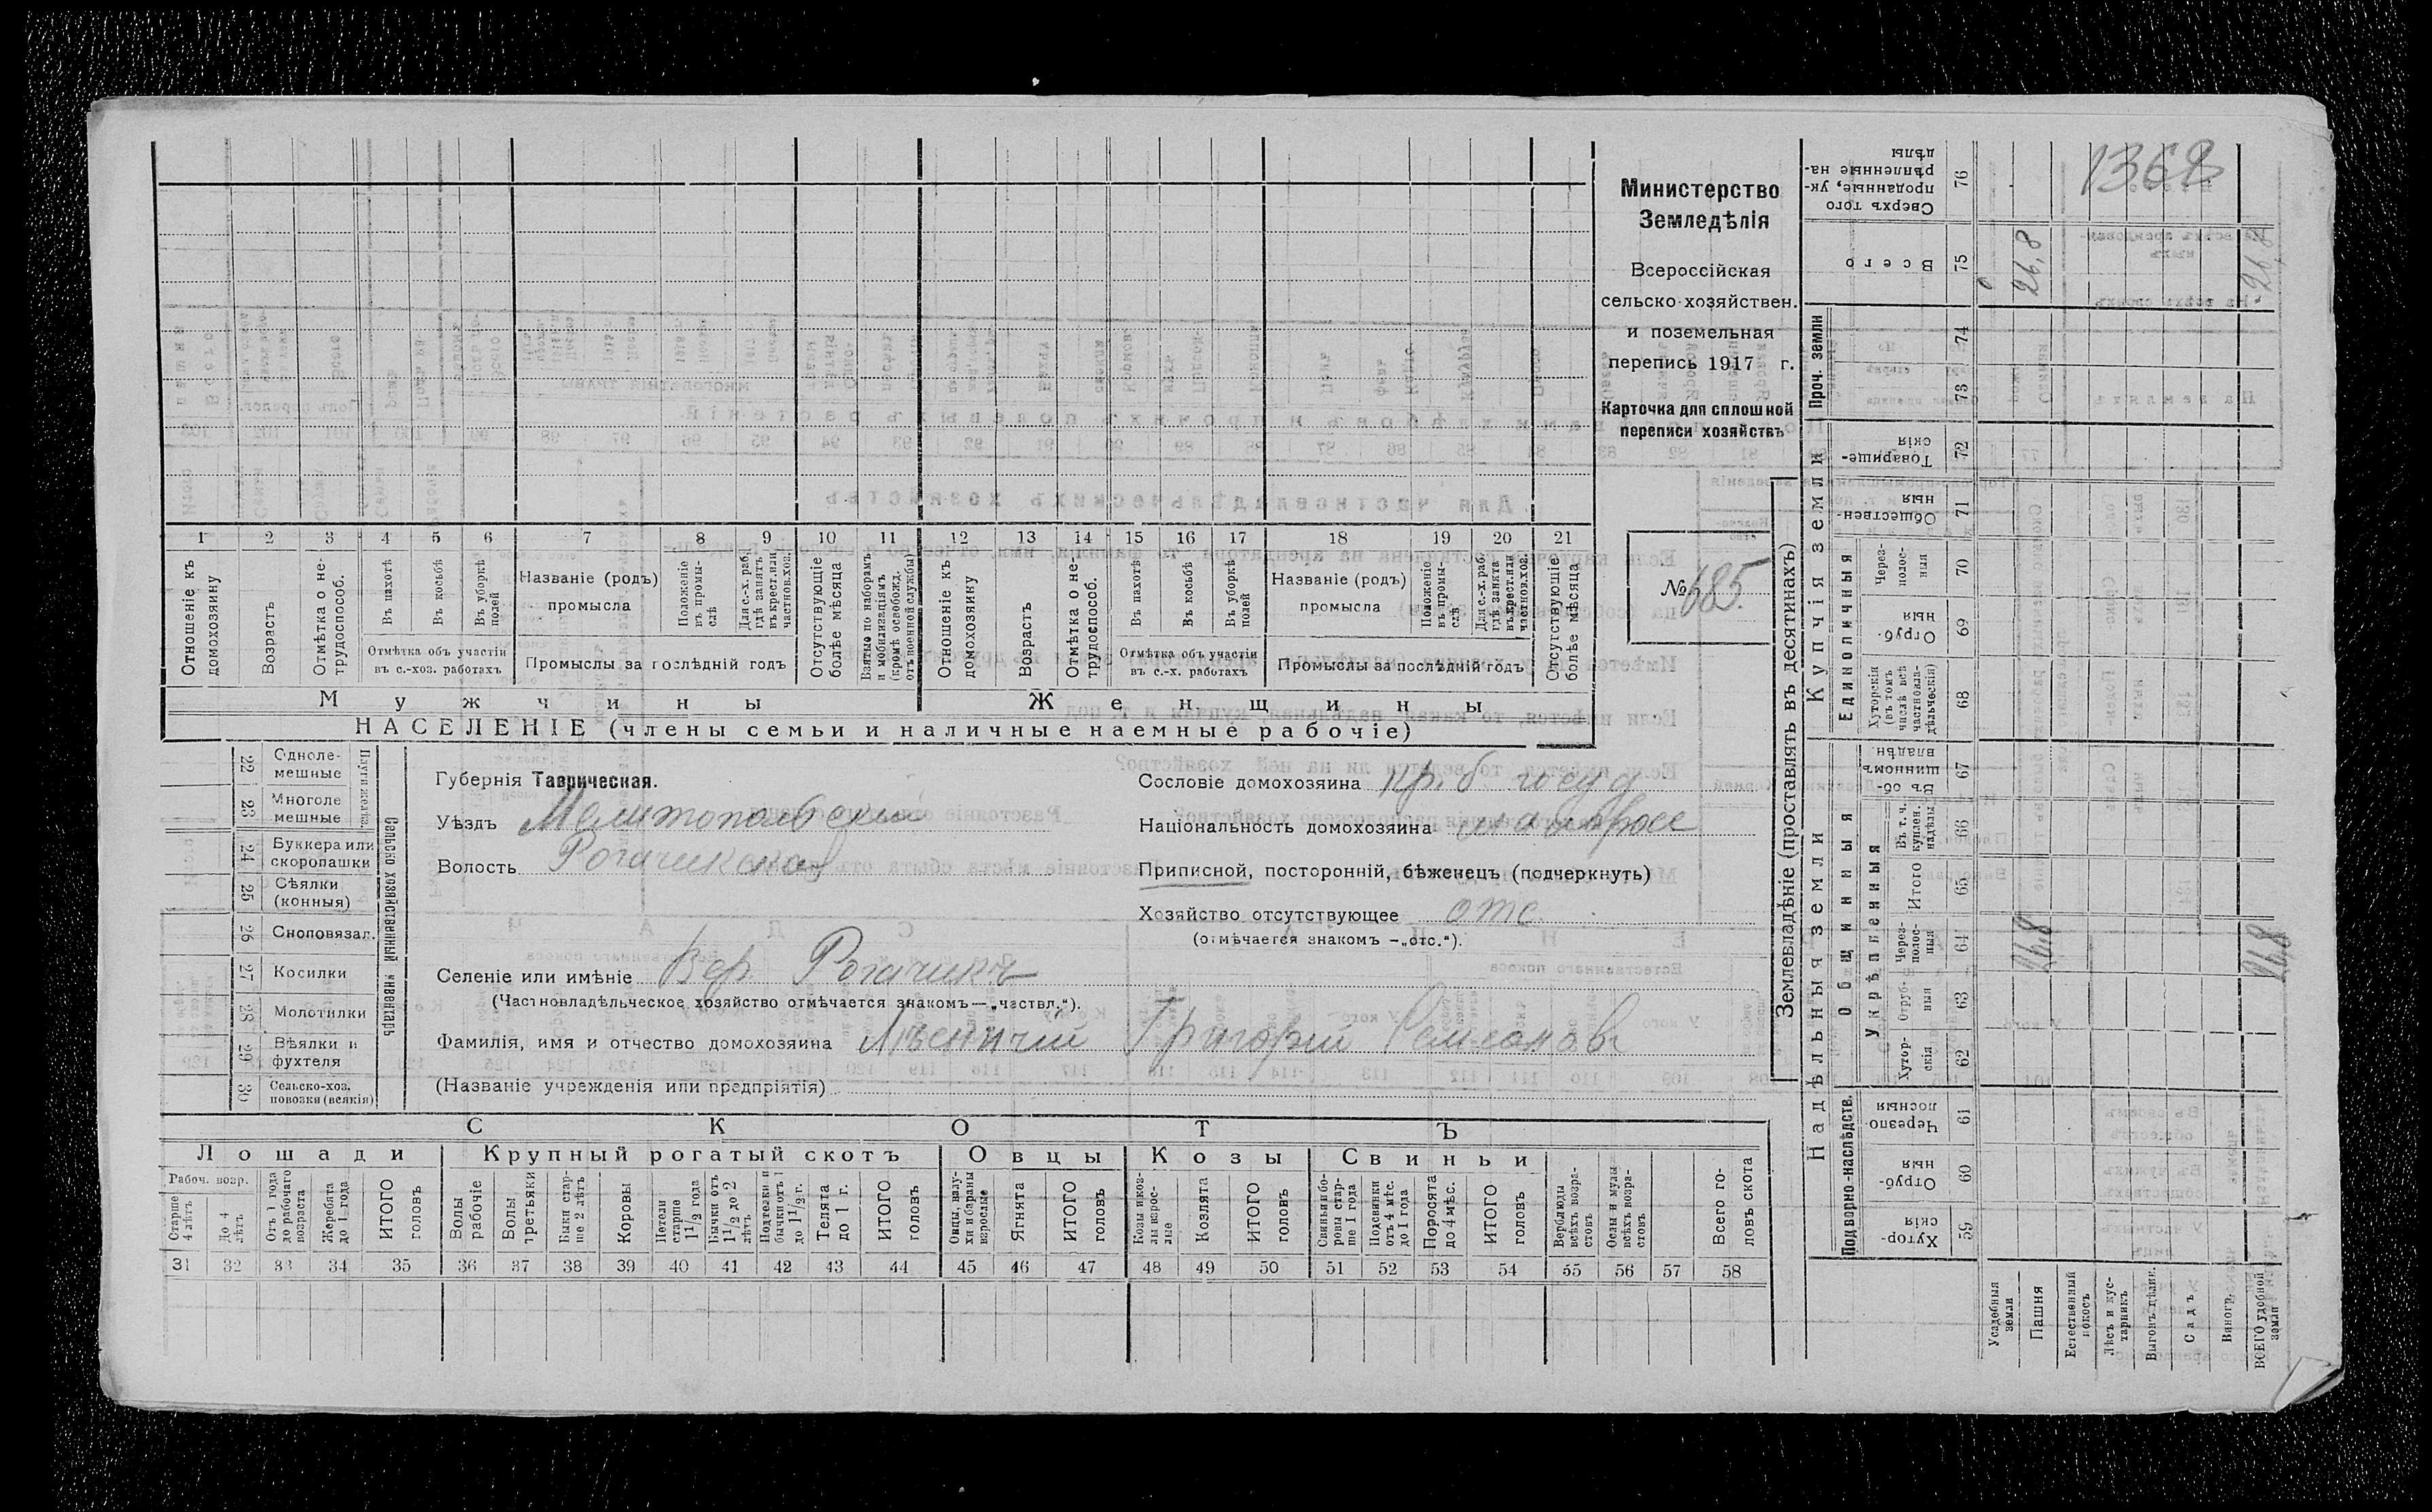 Министерство
Земледѣлія
Всероссійская
сельско-хозяйствен.
и поземельная
перепись 1917 г.
Карточка для сплошной
переписи хозяйствъ
№ 685.
1368
1 2 3 4 5 6 7 8 9 10 11 12 13 14 15 16 17 18 19 20 21
Отношеніе къ домохозяину
Возрастъ
Отмѣтка о нетрудоспособ.
Въ пахотѣ
Въ косьбѣ
Въ уборкѣ полей
Отмѣтка объ участіи
въ с.-хоз. работахъ
Названіе (родъ)
промысла
Положеніе въ промыслѣ
Для с.-х. раб. гдѣ занятъ въ крест. или частнов. хоз.
Промыслы за послѣдній годъ
Отсутствующіе болѣе мѣсяца
Взятые по наборамъ и мобилизаціямъ (кромѣ освобожд. отъ военной службы)
Отношеніе къ домохозяину
Возрастъ
Отмѣтка о нетрудоспособ.
Въ пахотѣ
Въ косьбѣ
Въ уборкѣ полей
Отмѣтка объ участіи
въ с.-х. работахъ
Названіе (родъ)
промысла
Положеніе въ промыслѣ
Для с.-х. раб. гдѣ занята въ крест. или частнов. хоз.
Промыслы за послѣдній годъ
Отсутствующіе болѣе мѣсяца
Мужчины
Женщины
НАСЕЛЕНІЕ (члены семьи и наличные наемные рабочіе)
22 Одноле-
мешные
23 Многоле
мешные
24 Буккера или
скоропашки
25 Сѣялки
(конныя)
26 Сноповязал.
27 Косилки
28 Молотилки
29 Вѣялки и
фухтеля
30 Сельско-хоз.
повозки (всякія)
Сельско хозяйственный инвентарь
Губернія Таврическая.
Уѣздъ Мелитопольскій
Волость Рогачикская
Селеніе или имѣніе Вер. Рогачикъ
(Частновладѣльческое хозяйство отмѣчается знакомъ—„частвл.“).
Фамилія, имя и отчество домохозяина Лѣсничій Григорій Семеновъ
(Названіе учрежденія или предпріятія)
Сословіе домохозяина кр. б. госуд
Національность домохозяина малоросс
Приписной, посторонній, бѣженецъ (подчеркнуть)
Хозяйство отсутствующее отс.
(отмѣчается знакомъ —„отс.“).
СКОТЪ
Лошади
Крупный рогатый скотъ
Овцы
Козы
Свиньи
Рабоч. возр.
Старше 4 лѣтъ
До 4 лѣтъ
Отъ 1 года до рабочаго возраста
Жеребята до 1 года
ИТОГО головъ
Волы рабочіе
Волы третьяки
Быки старше 2 лѣтъ
Коровы
Нетели старше 1 1/2 года
Бычки отъ 1 1/2 до 2 лѣтъ
Подтелки и бычки отъ 1 до 1 1/2 г.
Телята до 1 г.
ИТОГО головъ
Овцы, валухи и бараны взрослые
Ягнята
ИТОГО головъ
Козы и козлы взрослые
Козлята
ИТОГО головъ
Свиньи и боровы старше 1 года
Подсвинки отъ 4 мѣс. до 1 года
Поросята до 4 мѣс.
ИТОГО головъ
Верблюды всѣхъ возрастовъ
Ослы и мулы всѣхъ возрастовъ
Всего головъ скота
31 32 33 34 35 36 37 38 39 40 41 42 43 44 45 46 47 48 49 50 51 52 53 54 55 56 57 58
Землевладѣніе (проставлять въ десятинахъ)
Надѣльныя земли
Купчія земли
Проч. земли
Подворно-наслѣдств.
Общинныя
Укрѣпленныя
Единоличныя
Хутор-
скія 59
Отруб-
ныя 60
Черезпо-
лосныя 61
Хутор-
скія 62
Отруб-
ныя 63
Черезполосныя 64
Итого 65
Въ т. ч. куплен. надѣлы 66
Въ общинномъ владѣн. 67
Хуторскія (въ томъ числѣ всѣ частновладѣльческія) 68
Отруб-
ныя 69
Через-
полос-
ныя 70
Обществен-
ныя 71
Товарище-
скія 72
73
74
Всего 75
Сверхъ того проданные, укрѣпленные надѣлы 76
Усадебныя земли
Пашня 26,8 26,8
Естественный покосъ
Лѣсъ и кустарникъ
Выгонъ цѣлин.
Садъ
Виногр.
ВСЕГО удобной земли 26,8 26,8